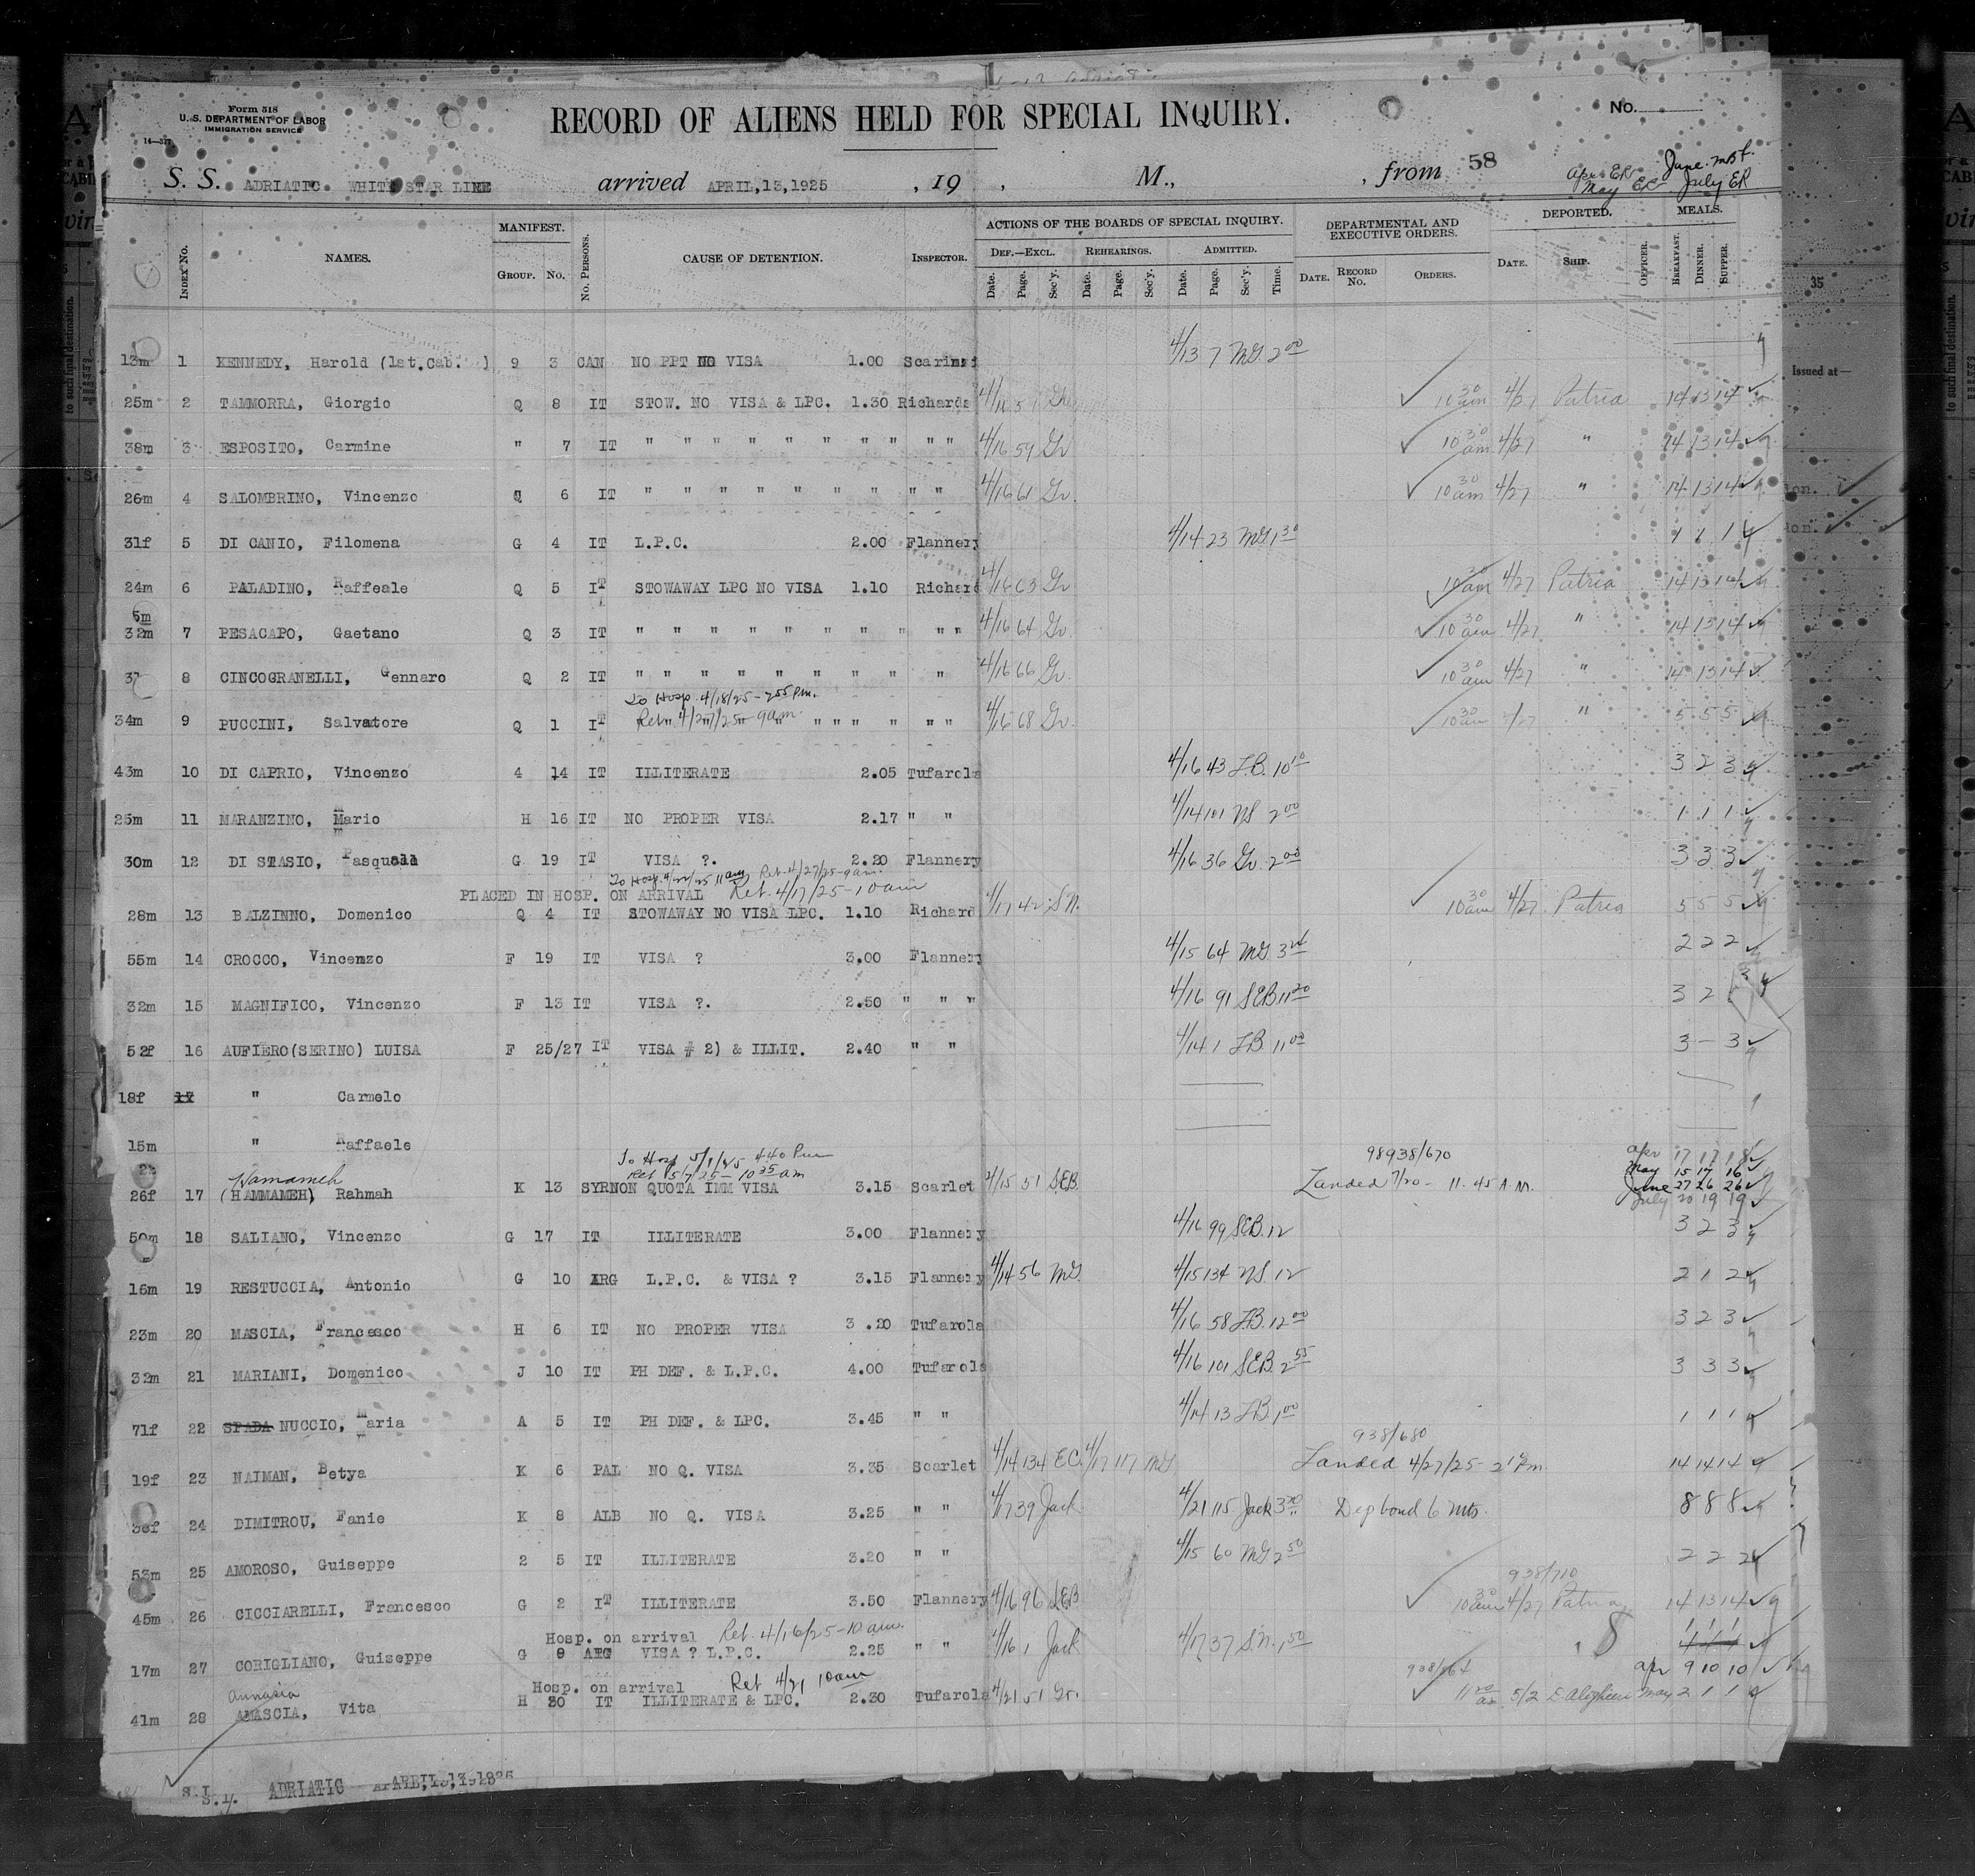 Form 518
U. S. DEPARTMENT OF LABOR
IMMIGRATION SERVICE
14—577
RECORD OF ALIENS HELD FOR SPECIAL INQUIRY.
No.
S. S. ADRIATIC WHITE STAR LINE arrived APRIL,13,1925 , 19 , M., , from 58
Apr ER June
May EC July ER
INDEX No. NAMES. MANIFEST. GROUP. No. No. PERSONS. CAUSE OF DETENTION. INSPECTOR. ACTIONS OF THE BOARDS OF SPECIAL INQUIRY. DEF.—EXCL. REHEARINGS. ADMITTED. DEPARTMENTAL AND EXECUTIVE ORDERS. DEPORTED. MEALS.
Date. Page. Sec'y. Date. Page. Sec'y. Date. Page. Sec'y. Time. DATE. RECORD No. ORDERS. DATE. SHIP. OFFICER. BREAKFAST. DINNER. SUPPER.
13m 1 KENNEDY, Harold (1st.Cab. ) 9 3 CAN NO PPT NO VISA 1.00 4/13 7 MG 2 00
25m 2 TAMMORRA, Giorgio Q 8 IT STOW. NO VISA & LPC. 1.30 Richards 4/16 57 Gr 10 30 am 4/27 Patria 14 13 14
38m 3 ESPOSITO, Carmine " 7 IT " " " " " " " " " " 4/16 59 Gr 10 30 am 4/27 " 14 13 14
26m 4 SALOMBRINO, Vincenzo Q 6 IT " " " " " " " " " 4/16 61 Gr. 10 30 am 4/27 " 14 13 14
31f 5 DI CANIO, Filomena G 4 IT L.P.C. 2.00 Flannery 4/14 23 MG 1 30 1 1 1
24m 6 PALADINO, Raffeale Q 5 IT STOWAWAY LPC NO VISA 1.10 Richard 4/16 63 Gr 10 30 am 4/27 Patria 14 13 14
32m 7 PESACAPO, Gaetano Q 3 IT " " " " " " " " " " 4/16 64 Gr. 10 30 am 4/27 " 14 13 14
8 CINCOGRANELLI, Gennaro Q 2 IT " " " " " " " " " 4/16 66 Gr. 10 30 am 4/27 " 14 13 14
To Hosp. 4/18/25 - 7 55 P.m.
34m 9 PUCCINI, Salvatore Q 1 IT Ret. 4/27/25 - 9 am. " " " " " " 4/16 68 Gr. 10 30 am 4/27 " 5 5 5
43m 10 DI CAPRIO, Vincenzo 4 14 IT ILLITERATE 2.05 Tufarola 4/16 43 J.B. 10 10 3 2 3
25m 11 MARANZINO, Mario H 16 IT NO PROPER VISA 2.17 " " 4/14 101 NS 2 00 1 1 1
30m 12 DI STASIO, Pasquale G 19 IT VISA ?. 2.20 Flannery 4/16 36 Gr. 2 00 3 3 3
To Hosp. 4/22/25 11 am Ret. 4/27/25 - 9 am
PLACED IN HOSP. ON ARRIVAL Ret. 4/17/25 - 10 am
28m 13 BALZINNO, Domenico Q 4 IT STOWAWAY NO VISA LPC. 1.10 Richard 4/17 42 SN. 10 30 am 4/27 Patria 5 5 5
55m 14 CROCCO, Vincenzo F 19 IT VISA ? 3.00 Flannery 4/15 64 MG 2 2 2
32m 15 MAGNIFICO, Vincenzo F 13 IT VISA ?. 2.50 " " " 4/16 91 SEB 11 20 3 2 3
52f 16 AUFIERO(SERINO) LUISA F 25/27 IT VISA # 2) & ILLIT. 2.40 " " 4/14 1 J.B. 11 00 3 – 3
18f 17 " Carmelo
15m " Raffaele
To Hosp 5/1/25 4 40 Pm
Ret 5/7/25 - 10 35 am
98938/670 Apr 17 17 18
Hamameh May 15 17 16
26f 17 (HAMMAMEH) Rahmah K 13 SYR NON QUOTA IMM VISA 3.15 Scarlet 4/15 51 SEB. Landed 7/20 - 11.45 A.M. June 27 26 26
July 20 19 19
50m 18 SALIANO, Vincenzo G 17 IT ILLITERATE 3.00 Flannery 4/16 99 SEB. 12 3 2 3
16m 19 RESTUCCIA, Antonio G 10 ARG L.P.C. & VISA ? 3.15 Flannery 4/14 56 MG. 4/15 134 NS. 12 2 1 2
23m 20 MASCIA, Francesco H 6 IT NO PROPER VISA 3 .20 Tufarola 4/16 58 J.B. 12 00 3 2 3
32m 21 MARIANI, Domenico J 10 IT PH DEF. & L.P.C. 4.00 Tufarola 4/16 101 SEB. 2 55 3 3 3
71f 22 SPADA NUCCIO, Maria A 5 IT PH DEF. & LPC. 3.45 " " 4/14 13 J.B. 1 00 1 1 1
938/680
19f 23 NAIMAN, Betya K 6 PAL NO Q. VISA 3.35 Scarlet 4/14 134 EC. 4/17 117 MG Landed 4/27/25 - 2 Pm. 14 14 14
24 DIMITROU, Fanie K 8 ALB NO Q. VISA 3.25 " " 4/17 39 Jack 4/21 115 Jack 3 20 Dep bond 6 mts. 8 8 8
53m 25 AMOROSO, Guiseppe 2 5 IT ILLITERATE 3.20 " " 4/15 60 MG 2 50 2 2 2
938/710
45m 26 CICCIARELLI, Francesco G 2 IT ILLITERATE 3.50 Flannery 4/16 96 SEB 10 30 am 4/27 Patria 14 13 14
Hosp. on arrival Ret. 4/16/25 - 10 am. 1 1 1
17m 27 CORIGLIANO, Guiseppe G 9 ARG VISA ? L.P.C. 2.25 " " 4/16 1 Jack 4/17 37 SN. 1 50
Hosp. on arrival Ret 4/21 10 am Apr 9 10 10
Annasia
41m 28 AMASCIA, Vita H 30 IT ILLITERATE & LPC. 2.30 Tufarola 4/21 51 Gr. 5/2 D Alighieri May 2 1 1
S.I. ADRIATIC APRIL,13,1925